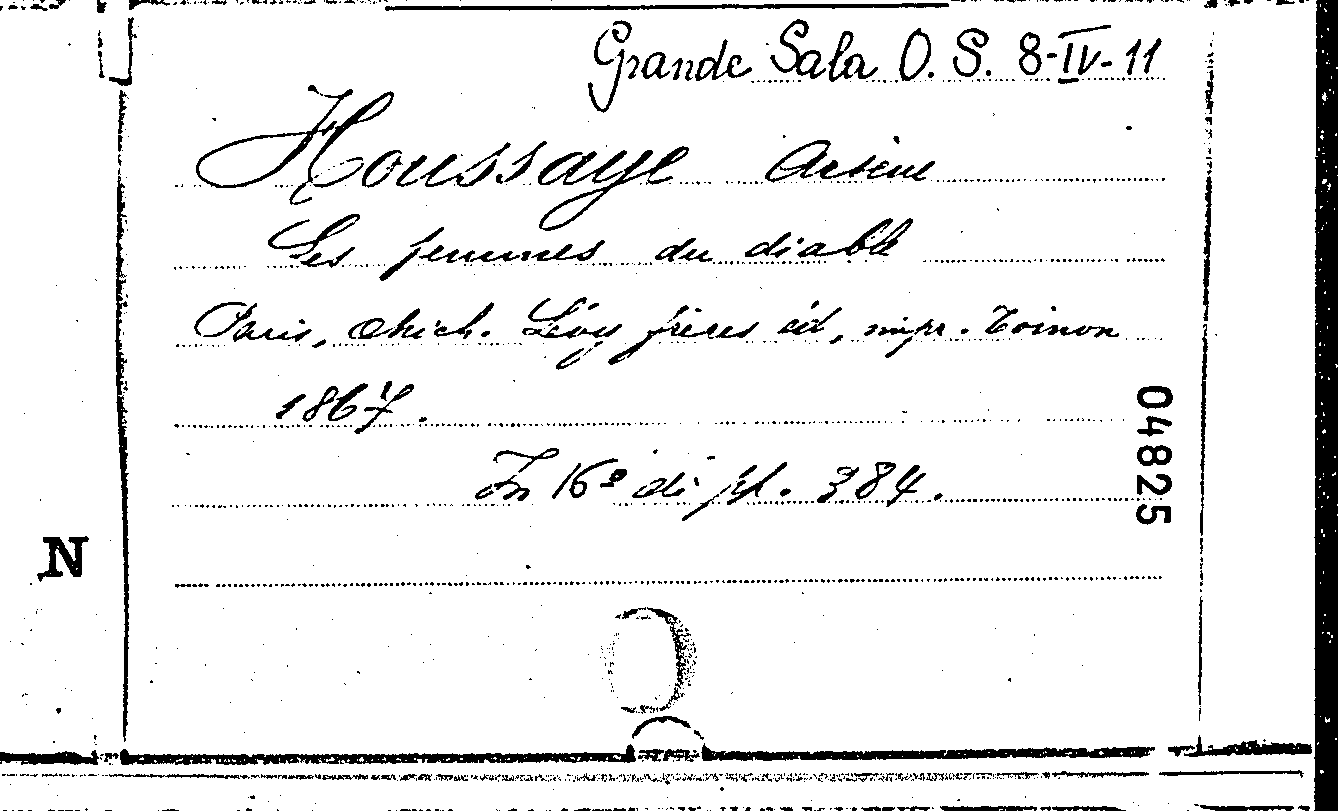 Grande Sala O. S. 8-IV-11
Houssaye Arsène
Les femmes du diable
Paris, Mich. Lévy frères éd, impr. Toinon
1867.
In 16º di pp. 384.
04825
N